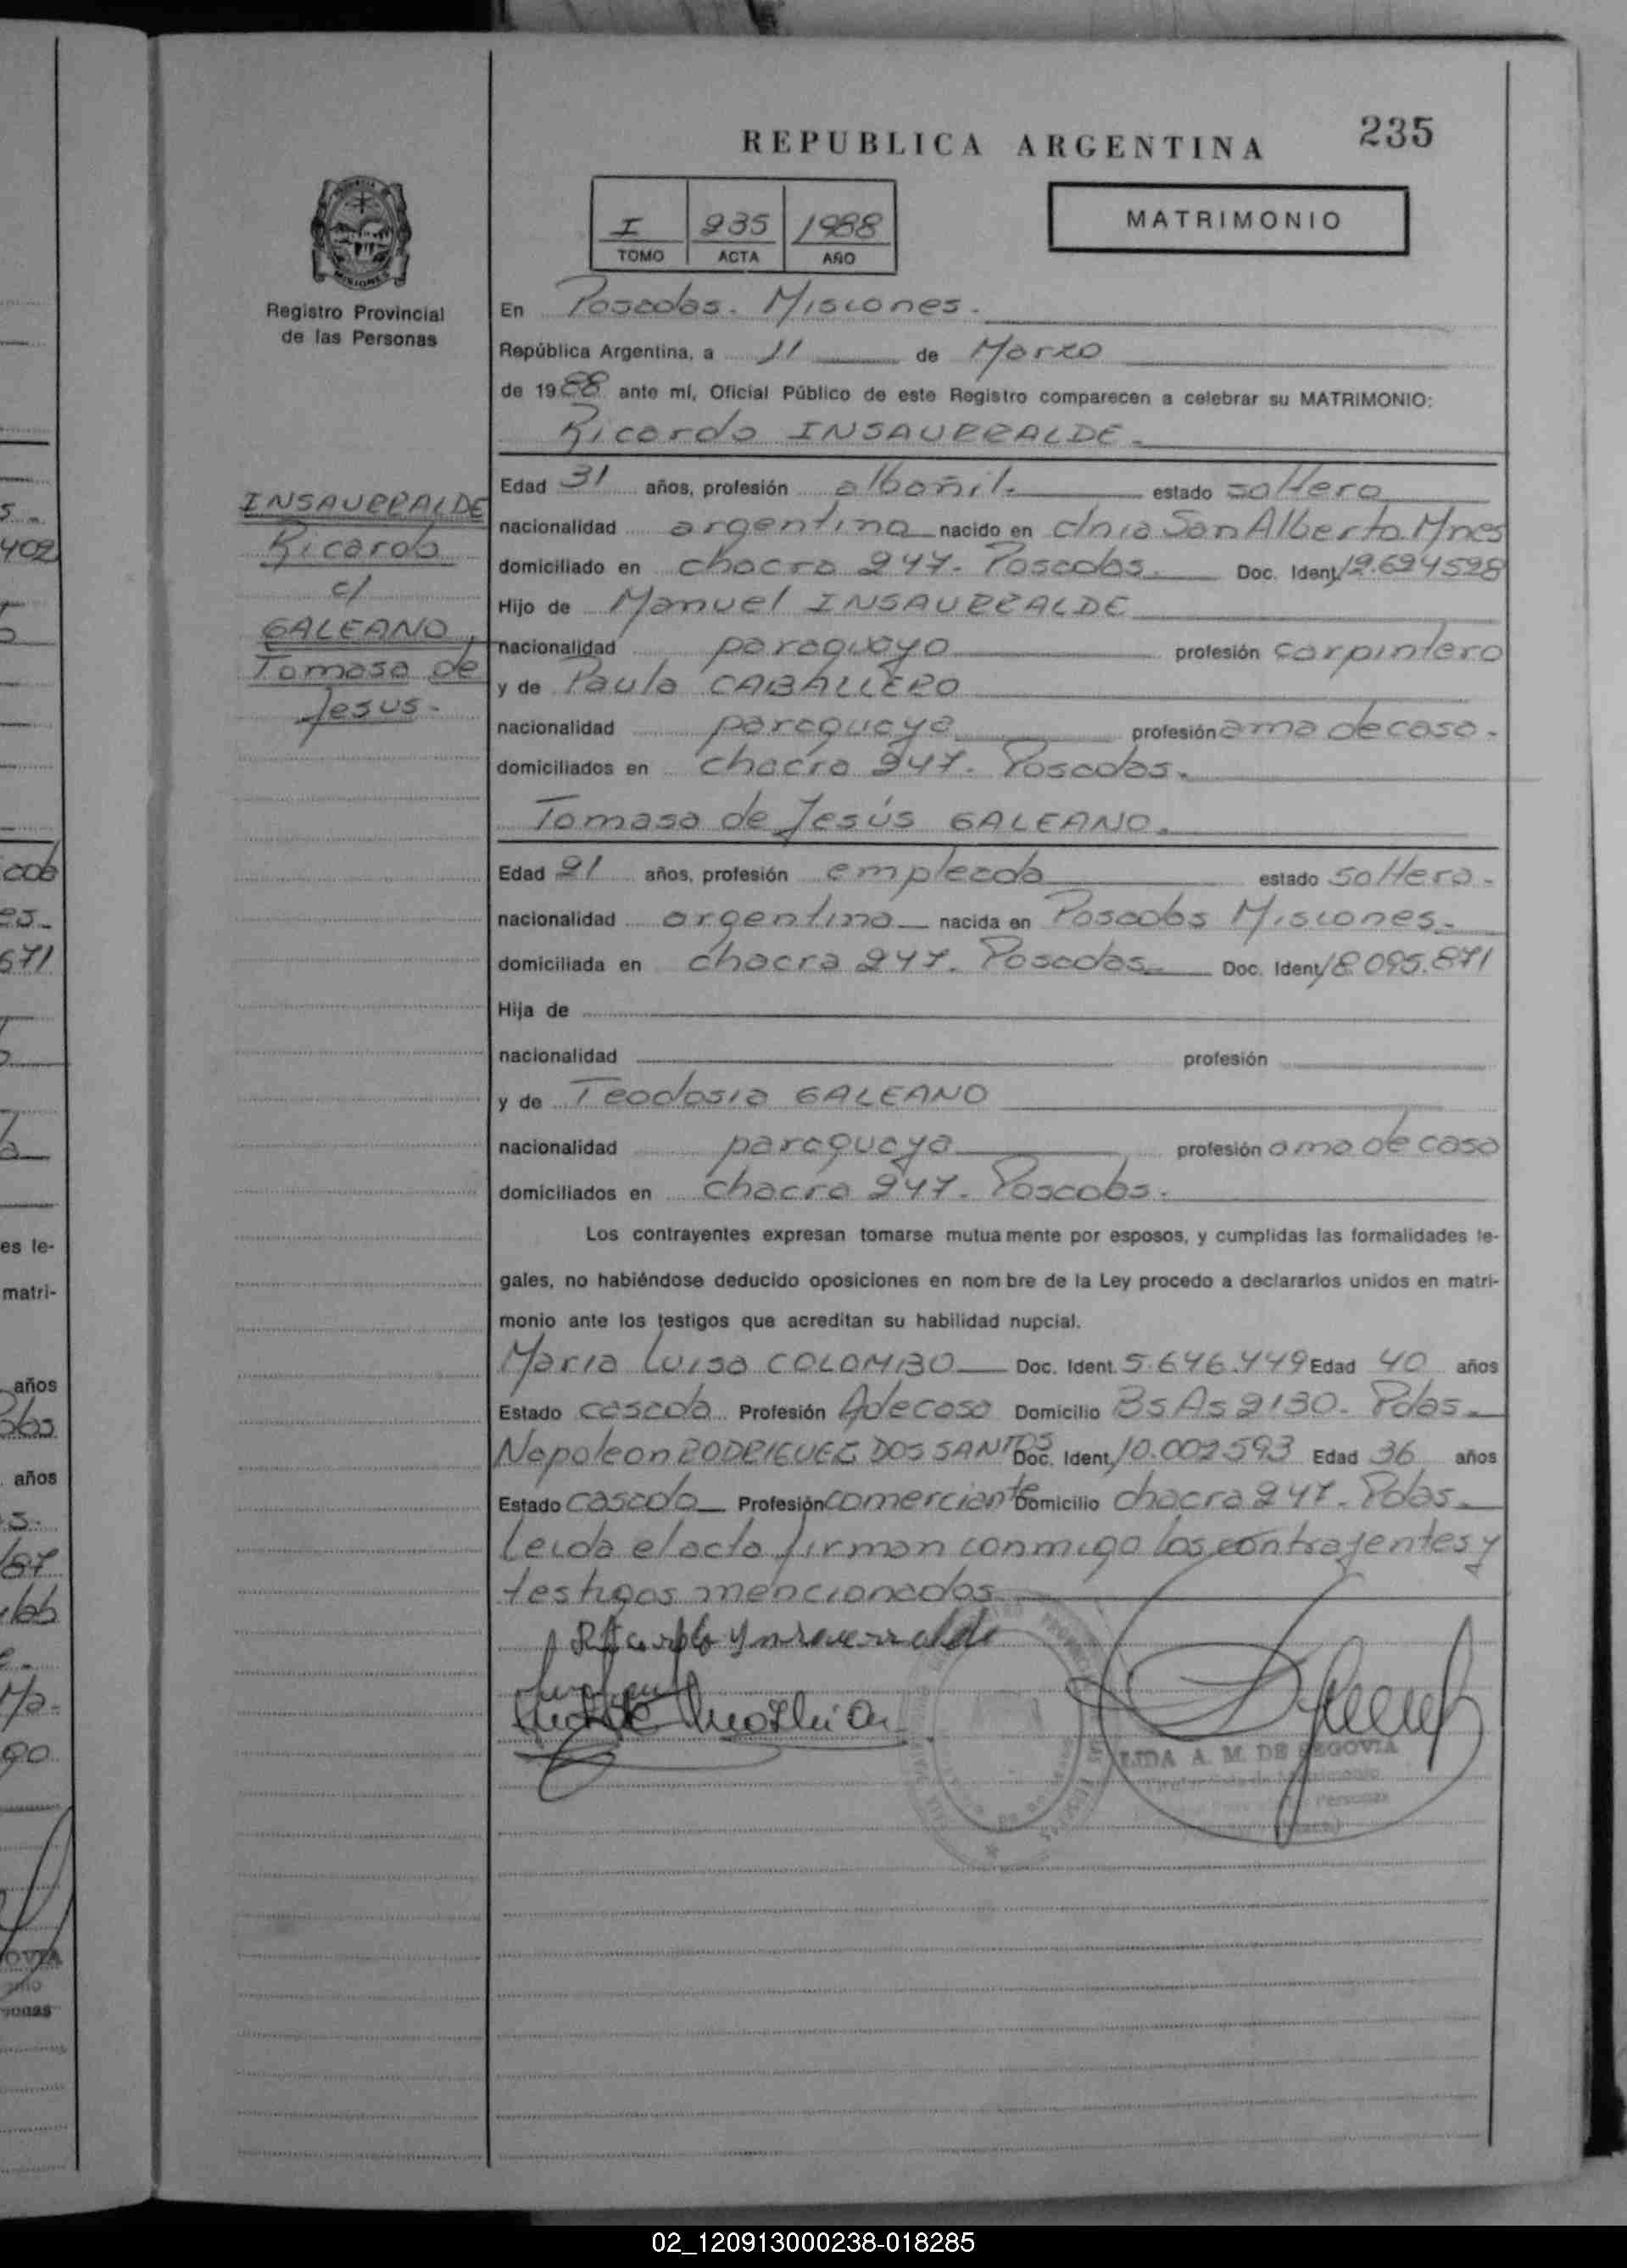 REPUBLICA ARGENTINA
235
I 235 1988
TOMO ACTA AÑO
MATRIMONIO
MISIONES
Registro Provincial
de las Personas
En Posadas. Misiones.
República Argentina, a 11 de Marzo
de 1988 ante mí, Oficial Público de este Registro comparecen a celebrar su MATRIMONIO:
Ricardo INSAURRALDE.
INSAURRALDE
Ricardo
c/
GALEANO,
Tomasa de
Jesus.
Edad 31 años, profesión albañil. estado soltero
nacionalidad argentina nacido en clnia San Alberto. Mnes
domiciliado en chacra 247. Posadas. Doc. Ident. 12.624528
Hijo de Manuel INSAURRALDE
nacionalidad paraguayo profesión carpintero
y de Paula CABALLERO
nacionalidad paraguaya profesión ama de casa.
domiciliados en chacra 247. Posadas.
Tomasa de Jesús GALEANO.
Edad 21 años, profesión empleada estado soltera.
nacionalidad argentina nacida en Posadas Misiones.
domiciliada en chacra 247. Posadas Doc. Ident. 18.095.871
Hija de
nacionalidad profesión
y de Teodosia GALEANO
nacionalidad paraguaya profesión ama de casa
domiciliados en chacra 247. Posadas.
Los contrayentes expresan tomarse mutua mente por esposos, y cumplidas las formalidades le-
gales, no habiéndose deducido oposiciones en nom bre de la Ley procedo a declararlos unidos en matri-
monio ante los testigos que acreditan su habilidad nupcial.
Maria Luisa COLOMBO Doc. Ident. 5.646.449 Edad 40 años
Estado casada Profesión Adecasa Domicilio Bs As 2130. Pdas.
Napoleon RODRIGUEZ DOS SANTOS Doc. Ident. 10.002593 Edad 36 años
Estado casado Profesión comerciante Domicilio chacra 247. Pdas.
Leida el acta firman conmigo los contrayentes y
testigos mencionados
Ricardo Ynsaurralde
LIDA A. M. DE SEGOVIA
s.
402
671
es le-
matri-
años
años
02_120913000238-018285